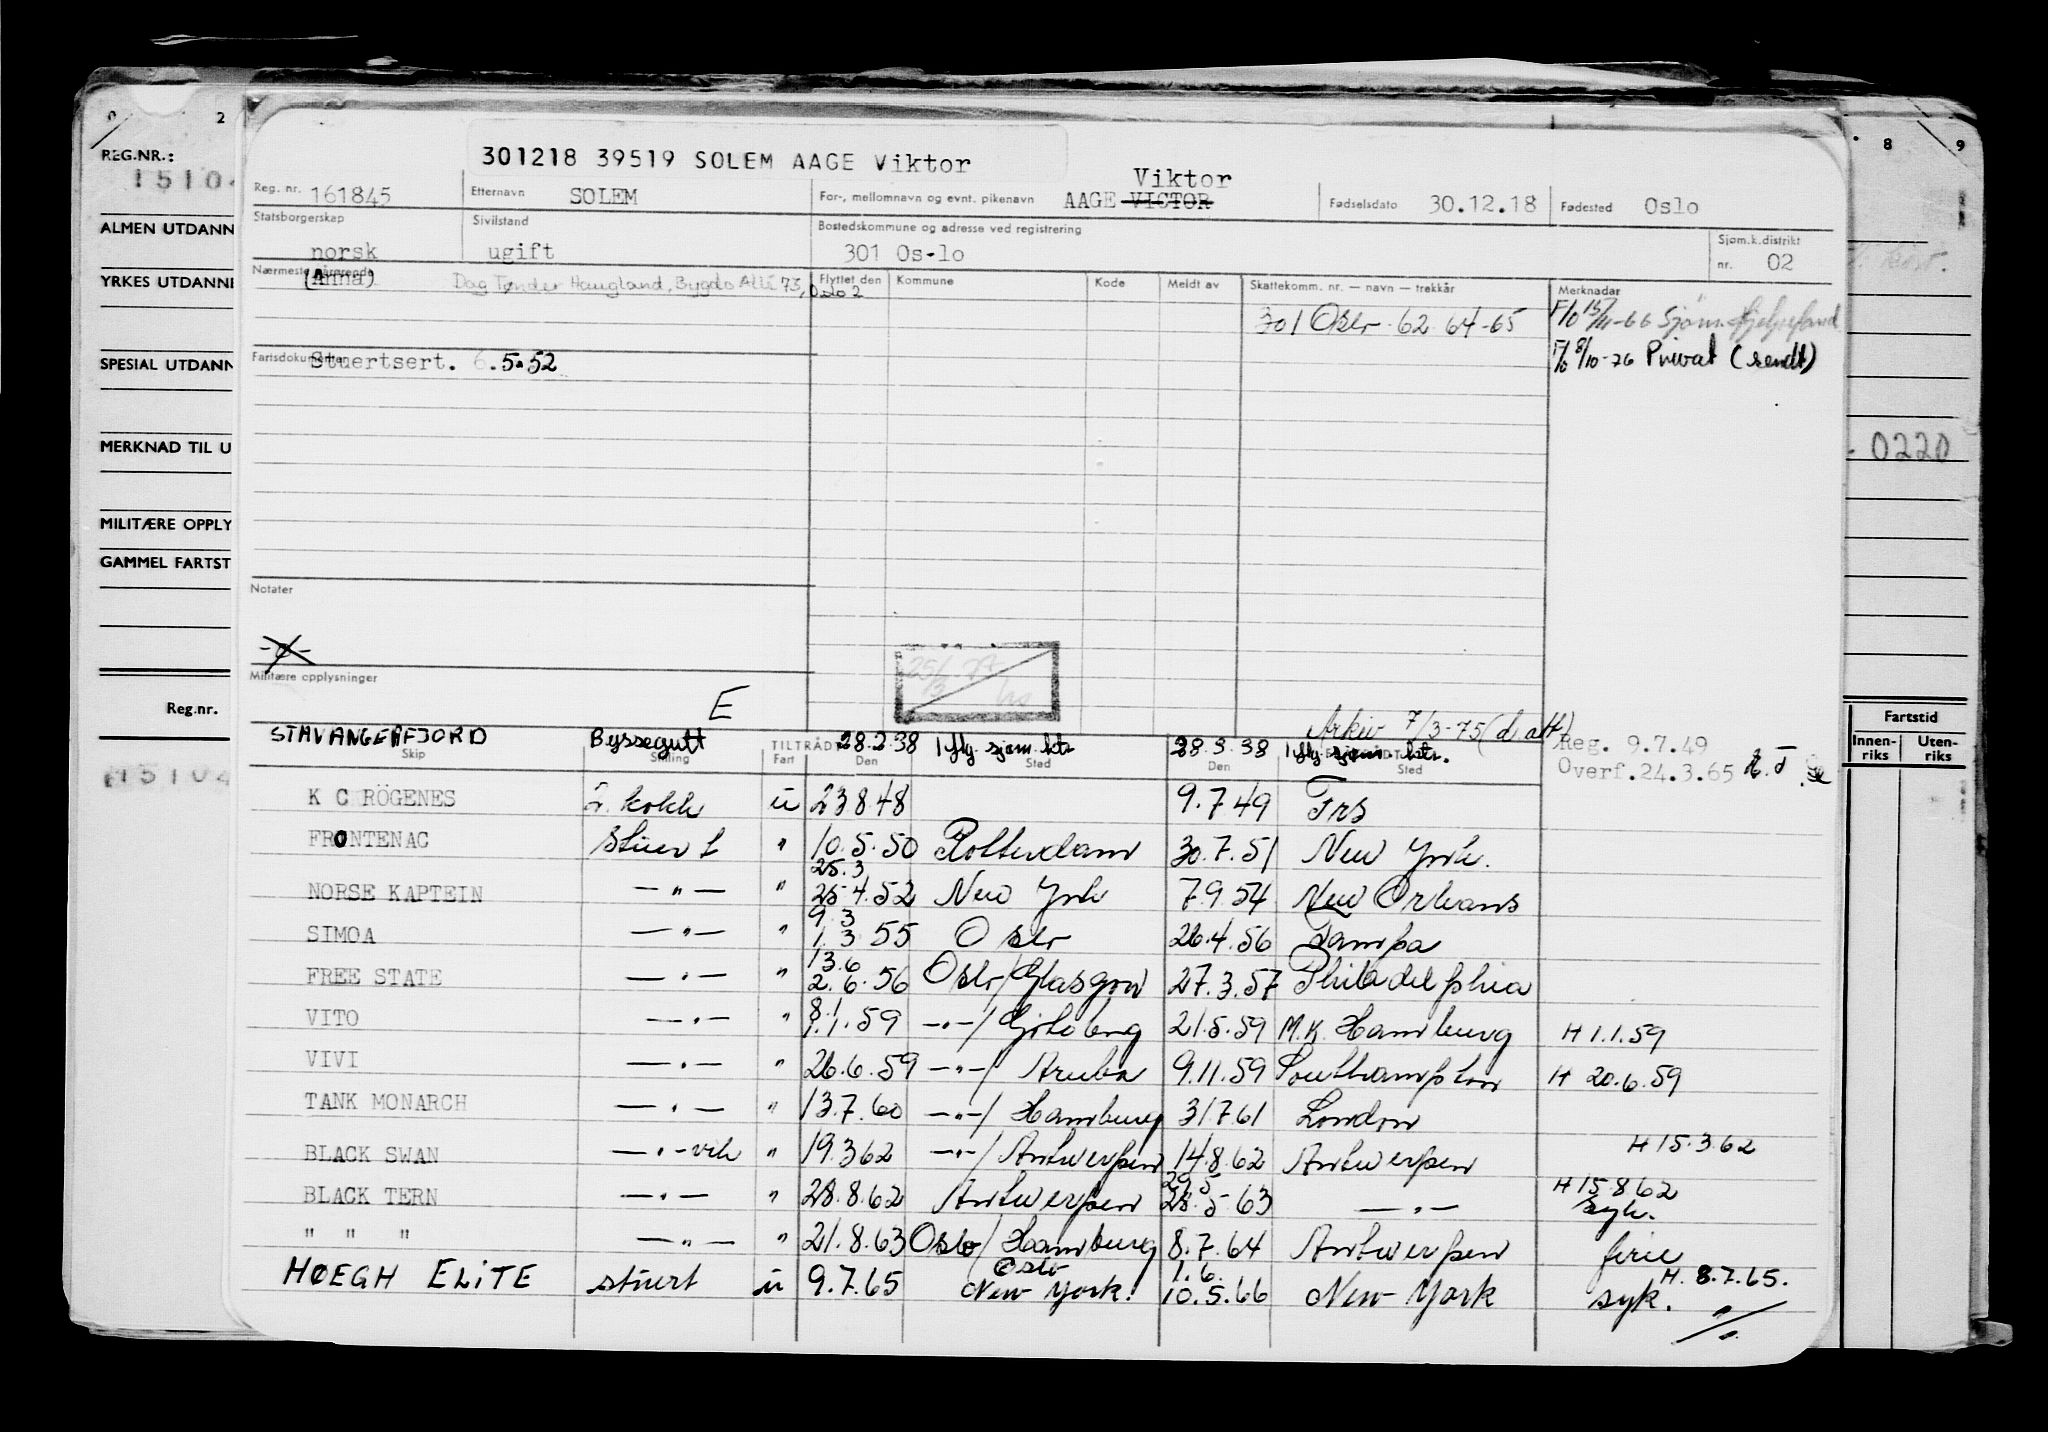 0 2 8 9
REG.NR.:
15104
ALMEN UTDANN
YRKES UTDANNE
SPESIAL UTDANN
MERKNAD TIL U
MILITÆRE OPPLY
GAMMEL FARTST
Reg.nr.
15104
0220
Fartstid
Innen-riks Uten-riks
301218 39519 SOLEM AAGE Viktor
Viktor
Reg. nr. 161845 Etternavn SOLEM For-, mellomnavn og evnt. pikenavn AAGE VICTOR Fødselsdato 30.12.18 Fødested Oslo
Statsborgerskap Sivilstand Bostedskommune og adresse ved registrering Sjøm.k.distrikt
norsk ugift 301 Os-lo nr. 02
Nærmeste pårørende (Anna) Dag Tønder Haugland, Bygdø Allé 73, Oslo 2 Flyttet den Kommune Kode Meldt av Skattekomm. nr. — navn — trekkår Merknader
301 Oslo 62 64-65 F/o 15/11-66 Sjøm. Hjelpefond
Fartsdokumenter Stuertsert. 6.5.52 F/o 8/10-76 Privat (sendt)
Notater
Militære opplysninger
25/3
E
Arkiv 7/3-75 (d. att)
STAVANGERFJORD Byssegutt TILTRÅDT 28.2.38 1 flg. sjøm. ktr. 28.3.38 1 flg. sjøm. ktr. Reg. 9.7.49
Skip Stilling Fart Den Sted Den Sted Overf. 24.3.65
K C RÖGENES 2. kokk u 23 8 48 9.7.49 Frs
FRONTENAC stuert " 10.5.50 Rotterdam 30.7.51 New York.
25.3
NORSE KAPTEIN —"— " 25 4.52 New York 7.9.54 New Orleans
9.3
SIMOA —"— " 1.3 55 Oslo 26.4.56 Tampa
13.6
FREE STATE —"— " 2.6.56 Oslo/Glasgow 27.3.57 Philadelphia
8.1
VITO —"— " 1.1.59 —"—/Göteborg 21.5.59 M.K. Hamburg H 1.1.59
VIVI —"— " 26.6.59 —"—/Aruba 9.11.59 Southampton H 20.6.59
TANK MONARCH —"— " 13.7.60 —"—/Hamburg 31 7 61 London
BLACK SWAN —"— vik " 19.3 62 —"—/Antwerpen 14.8.62 Antwerpen H 15.3.62
29 5
BLACK TERN —"— " 28.8.62 Antwerpen 28.5 63 —"— H 15.8.62 syk.
" " " —"— " 21.8.63 Oslo/Hamburg 8.7.64 Antwerpen ferie
Oslo 1.6. H. 8.7.65.
HØEGH ELITE stuert u 9.7.65 New York. 10.5.66 New York syk.